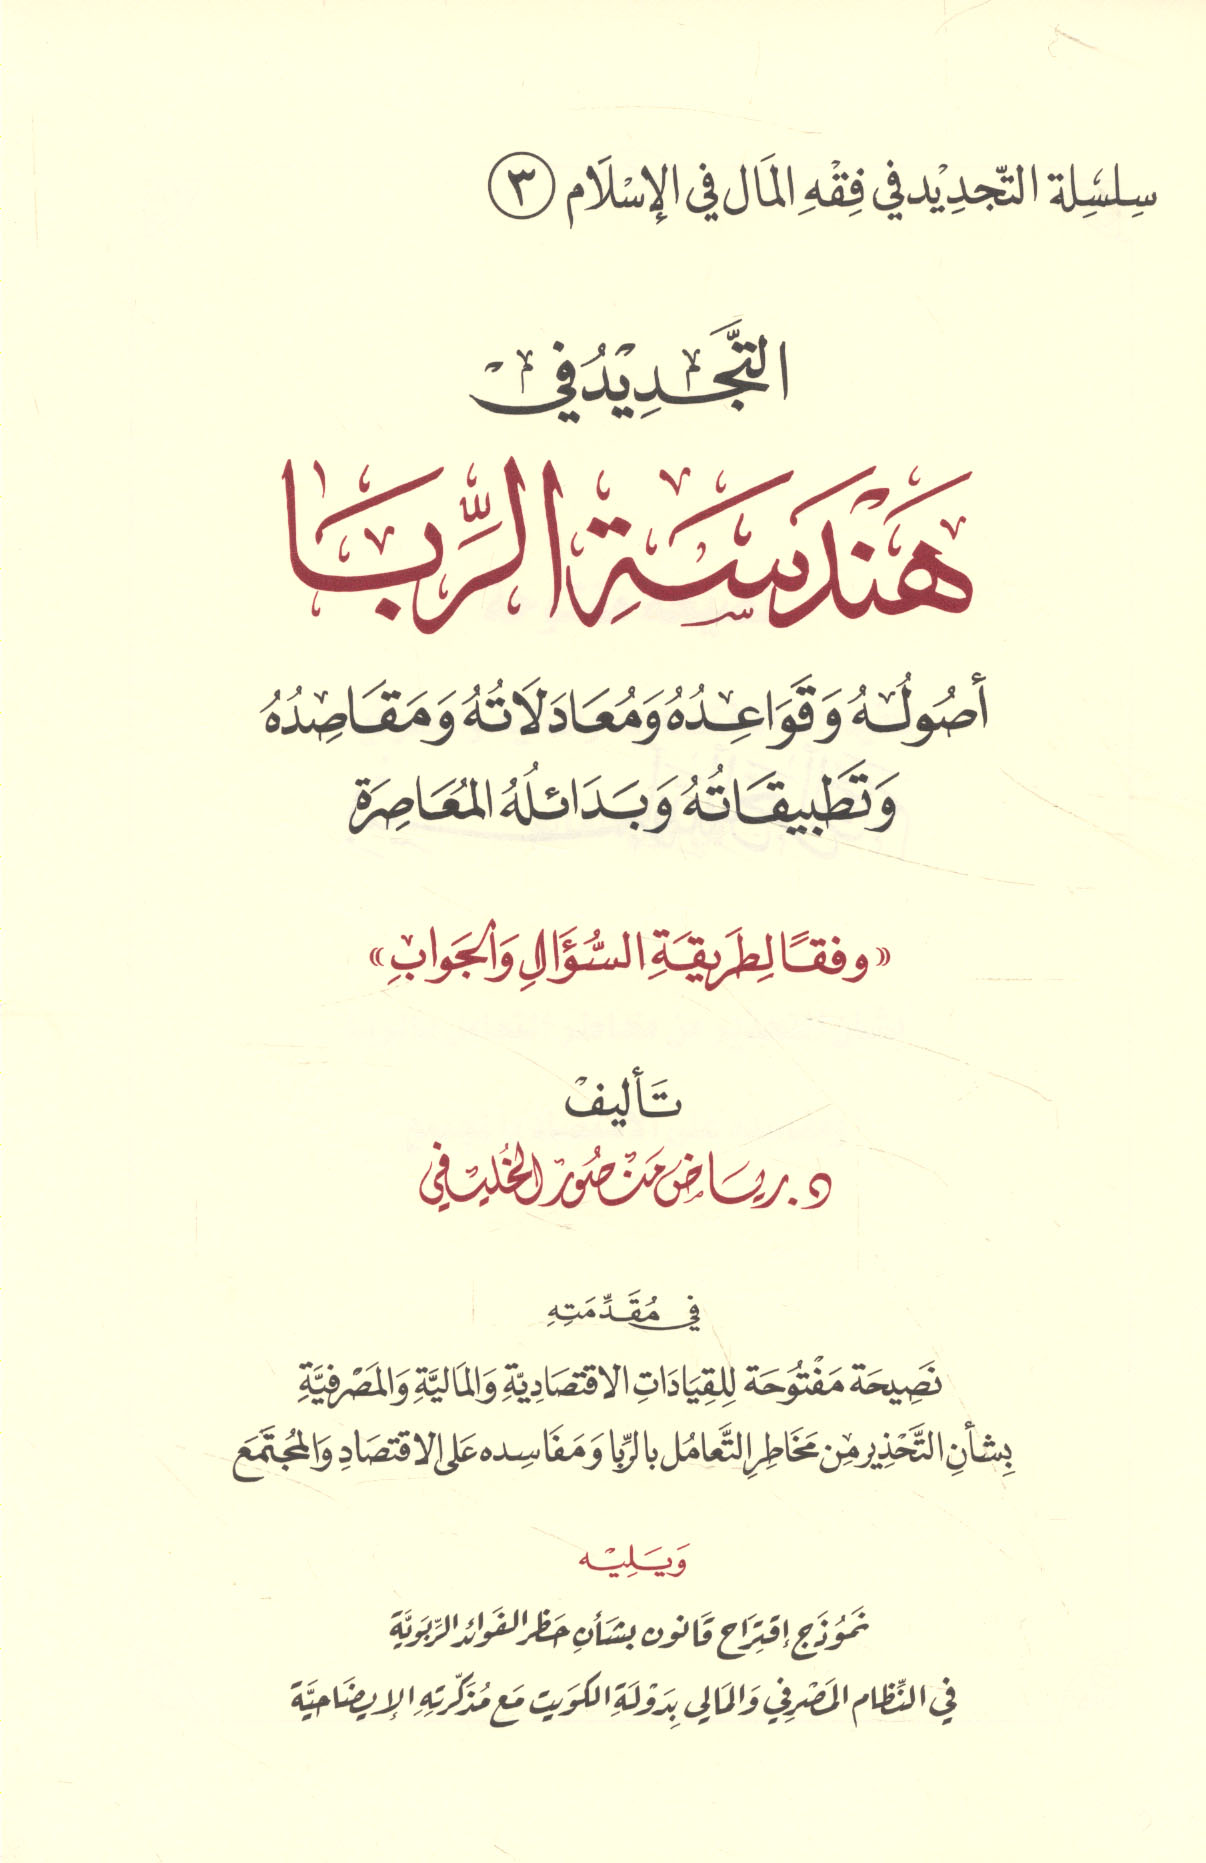 سِلسِلة التّجدِيْد في فِقْهِ المَال في الإسْلَام ٣
التَّجَدِيْدُ في
هَنْدَسَةِ الرِّبَا
أصُولُهُ وَقَوَاعِدُهُ وَمُعَادَلَاتُهُ وَمَقَاصِدُهُ
وَتَطبِيقَاتُهُ وَبَدَائلُهُ المُعَاصِرَة
«وفقًا لِطَرِيقَةِ السُّؤَالِ وَالجَوابِ»
تَأليفْ
د. رياض منصُور الخُليفي
في مُقَدِّمَتِهِ
نَصِيحَة مَفْتُوحَة لِلقِيَادَاتِ الاقتصَادِيَّةِ وَالمَاليَّةِ وَالمَصْرفيَّةِ
بِشأنِ التَّحْذِيرِ مِن مَخَاطِرِ التَّعامُل بالرِّبا وَمَفَاسِده عَلى الاقتصَادِ وَالمُجتَمَع
وَيَـلِيْـه
نَموُذَج إقتِرَاح قَانون بشَأنِ حَظر الفَوائد الرِّبَويَّة
في النِّظام المَصْرفي وَالمَالي بِدَوْلَةِ الكوَيت مَع مُذَكّرتِهِ الإيضَاحيَّة